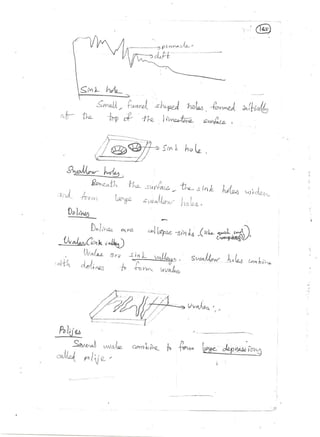 pinnacle
cleft
Sink hole
Small, funnel shaped holes, formed initially
at the top of the limestone surface.
Sink hole.
Swallow holes.
Beneath the surface, the sink holes widen
and form large swallow holes.
Dolines
Dolines are collapse sinks, (like
Uvales (sink valley)
Uvales are sink valleys. Swallow holes combine
with dolines to form uvales
uvales.
Poljes
Several uvale combine to form large depressions
called polije.